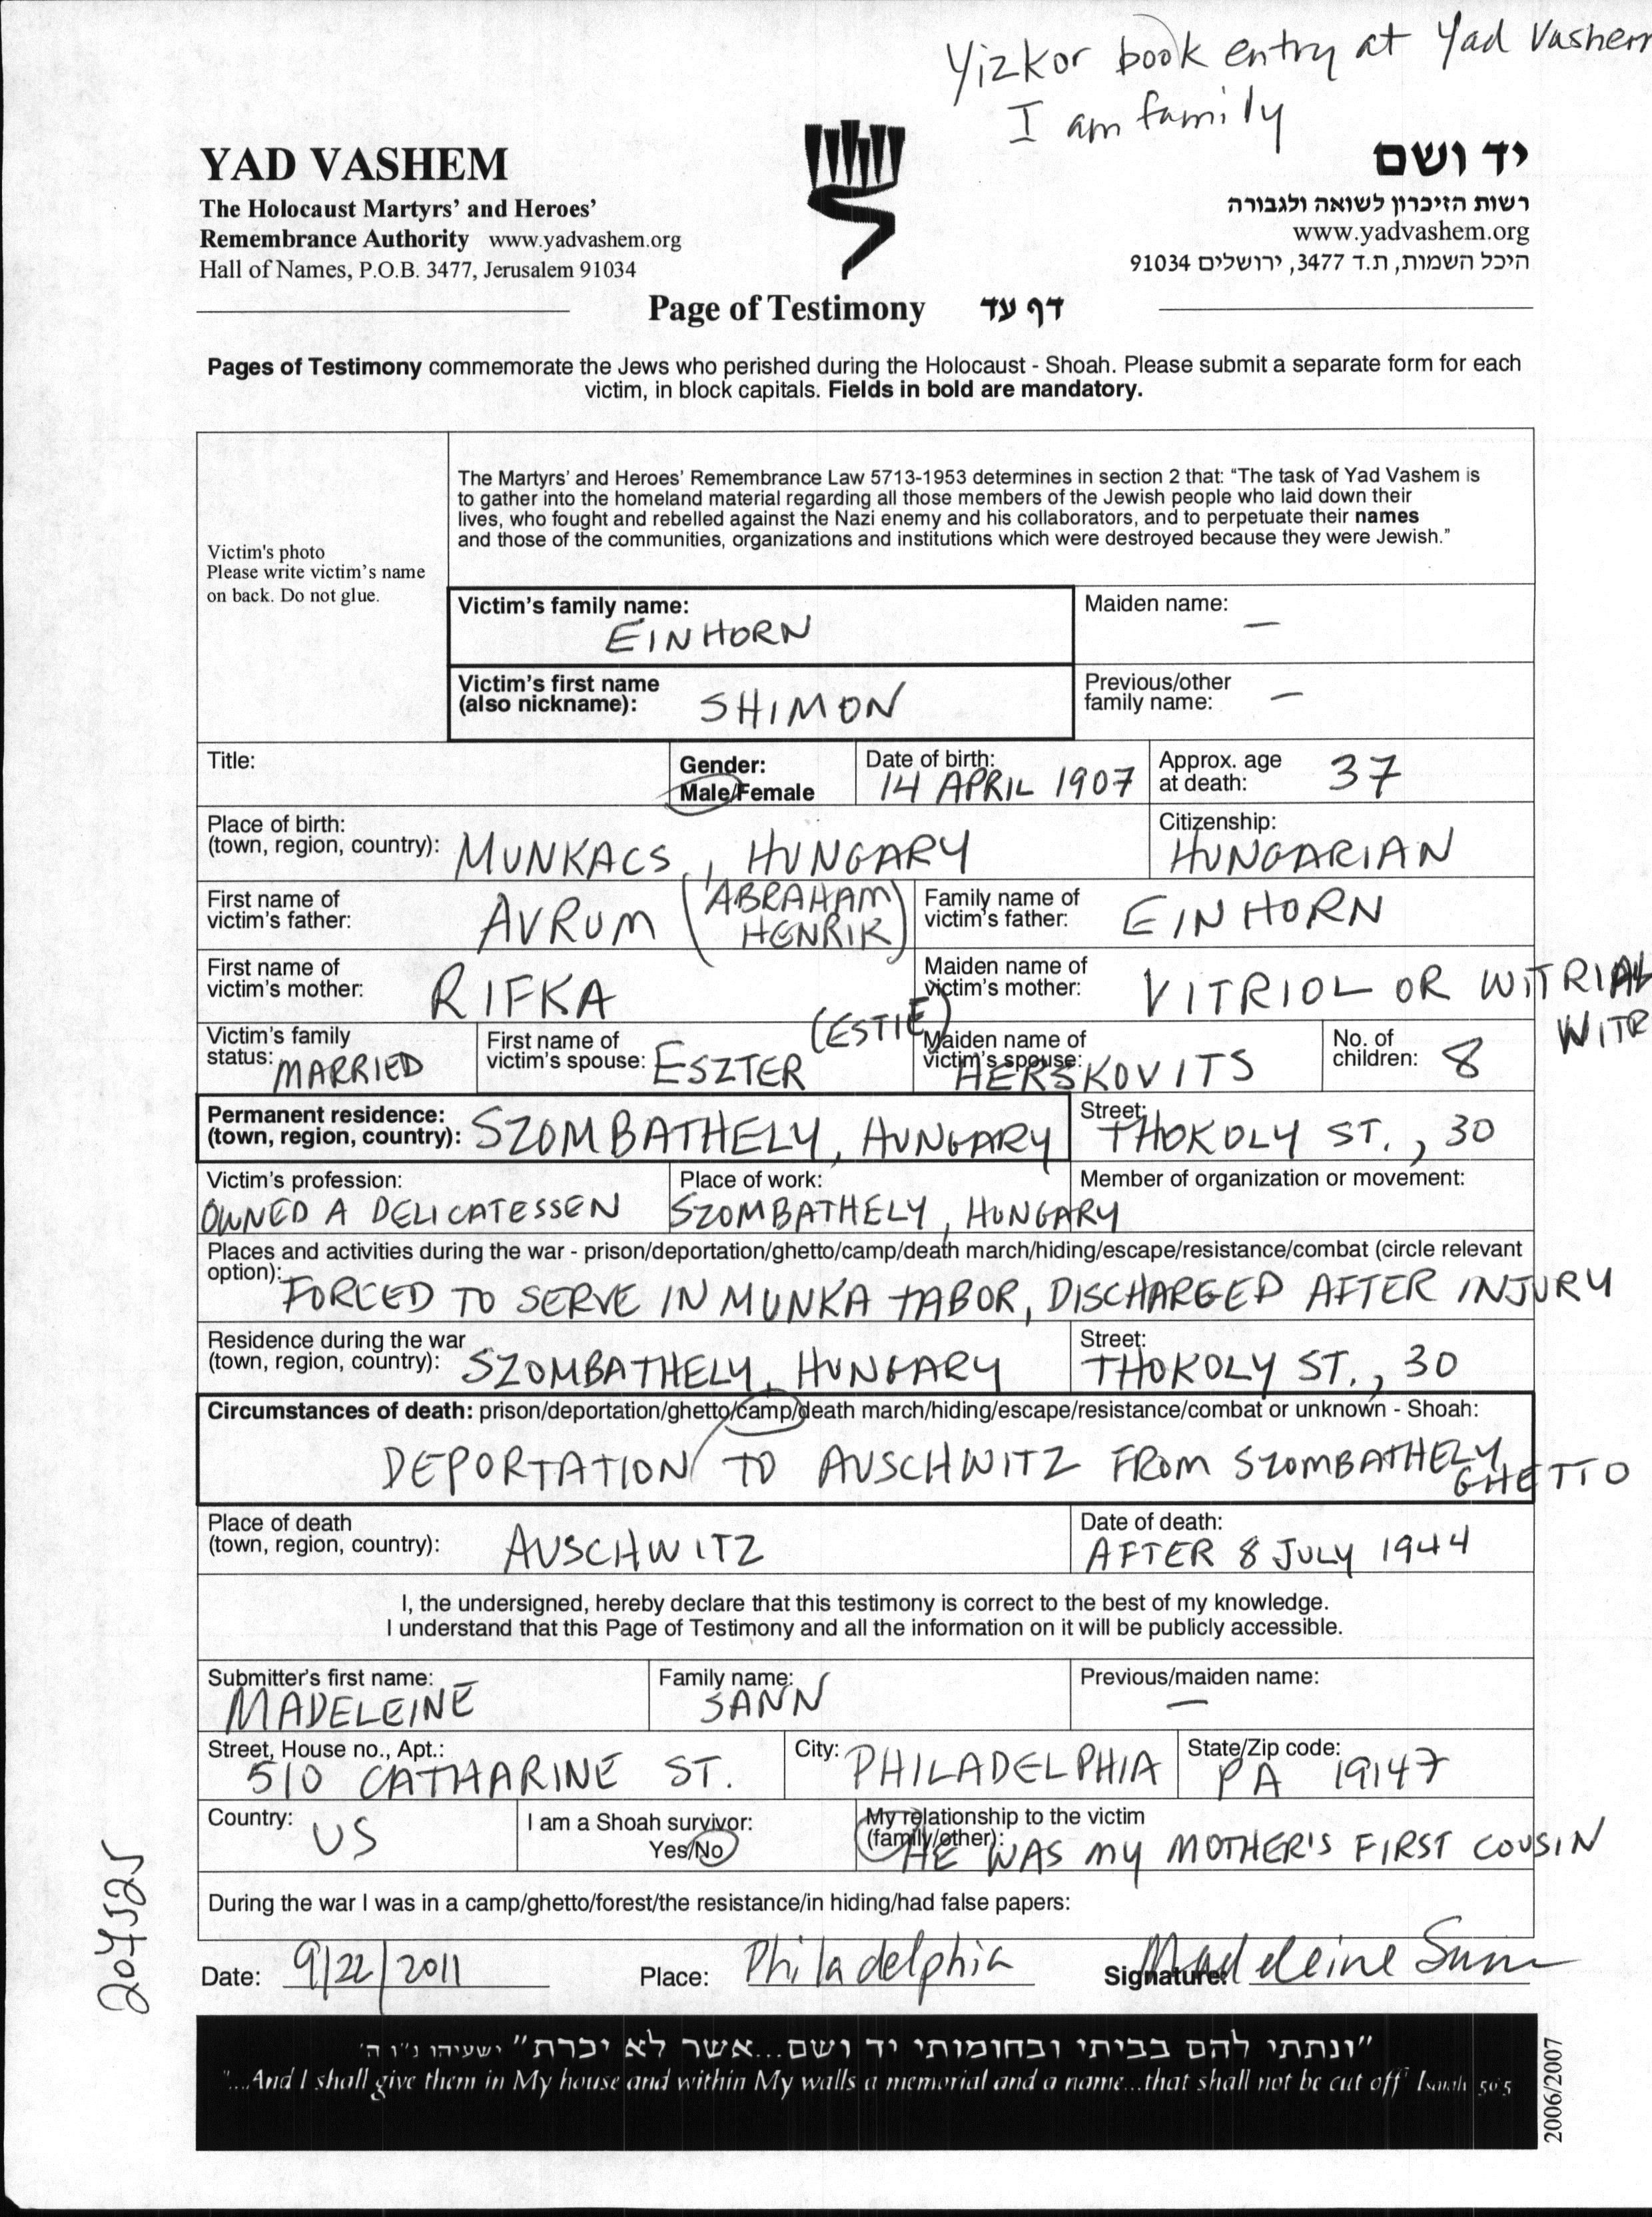 Yizkor book entry at Yad Vashem
I am family
YAD VASHEM
The Holocaust Martyrs' and Heroes'
Remembrance Authority www.yadvashem.org
Hall of Names, P.O.B. 3477, Jerusalem 91034
יד ושם
רשות הזיכרון לשואה ולגבורה
www.yadvashem.org
היכל השמות, ת.ד 3477, ירושלים 91034
Page of Testimony דף עד
Pages of Testimony commemorate the Jews who perished during the Holocaust - Shoah. Please submit a separate form for each
victim, in block capitals. Fields in bold are mandatory.
Victim's photo
Please write victim's name
on back. Do not glue.
The Martyrs' and Heroes' Remembrance Law 5713-1953 determines in section 2 that: "The task of Yad Vashem is
to gather into the homeland material regarding all those members of the Jewish people who laid down their
lives, who fought and rebelled against the Nazi enemy and his collaborators, and to perpetuate their names
and those of the communities, organizations and institutions which were destroyed because they were Jewish."
Victim's family name: EINHORN
Maiden name: —
Victim's first name
(also nickname): SHIMON
Previous/other
family name: —
Title:
Gender:
Male/Female
Date of birth:
14 APRIL 1907
Approx. age
at death: 37
Place of birth:
(town, region, country): MUNKACS, HUNGARY
Citizenship:
HUNGARIAN
First name of
victim's father: AVRUM (ABRAHAM HENRIK)
Family name of
victim's father: EINHORN
First name of
victim's mother: RIFKA
Maiden name of
victim's mother: VITRIOL OR WITRIAL
WITR
Victim's family
status: MARRIED
First name of
victim's spouse: ESZTER (ESTIE)
Maiden name of
victim's spouse: HERSKOVITS
No. of
children: 8
Permanent residence:
(town, region, country): SZOMBATHELY, HUNGARY
Street:
THOKOLY ST., 30
Victim's profession:
OWNED A DELICATESSEN
Place of work:
SZOMBATHELY, HUNGARY
Member of organization or movement:
Places and activities during the war - prison/deportation/ghetto/camp/death march/hiding/escape/resistance/combat (circle relevant
option): FORCED TO SERVE IN MUNKA TABOR, DISCHARGED AFTER INJURY
Residence during the war
(town, region, country): SZOMBATHELY, HUNGARY
Street:
THOKOLY ST., 30
Circumstances of death: prison/deportation/ghetto/camp/death march/hiding/escape/resistance/combat or unknown - Shoah:
DEPORTATION TO AUSCHWITZ FROM SZOMBATHELY
GHETTO
Place of death
(town, region, country): AUSCHWITZ
Date of death:
AFTER 8 JULY 1944
I, the undersigned, hereby declare that this testimony is correct to the best of my knowledge.
I understand that this Page of Testimony and all the information on it will be publicly accessible.
Submitter's first name:
MADELEINE
Family name:
SANN
Previous/maiden name:
—
Street, House no., Apt.:
510 CATHARINE ST.
City: PHILADELPHIA
State/Zip code:
PA 19147
Country: US
I am a Shoah survivor:
Yes/No
My relationship to the victim
(family/other): HE WAS MY MOTHER'S FIRST COUSIN
During the war I was in a camp/ghetto/forest/the resistance/in hiding/had false papers:
Date: 9/22/2011
Place: Philadelphia
Signature: Madeleine Sann
207525
"ונתתי להם בביתי ובחומותי יד ושם...אשר לא יכרת" ישעיהו נ"ו ה'
"...And I shall give them in My house and within My walls a memorial and a name...that shall not be cut off" Isaiah 56:5
2006/2007